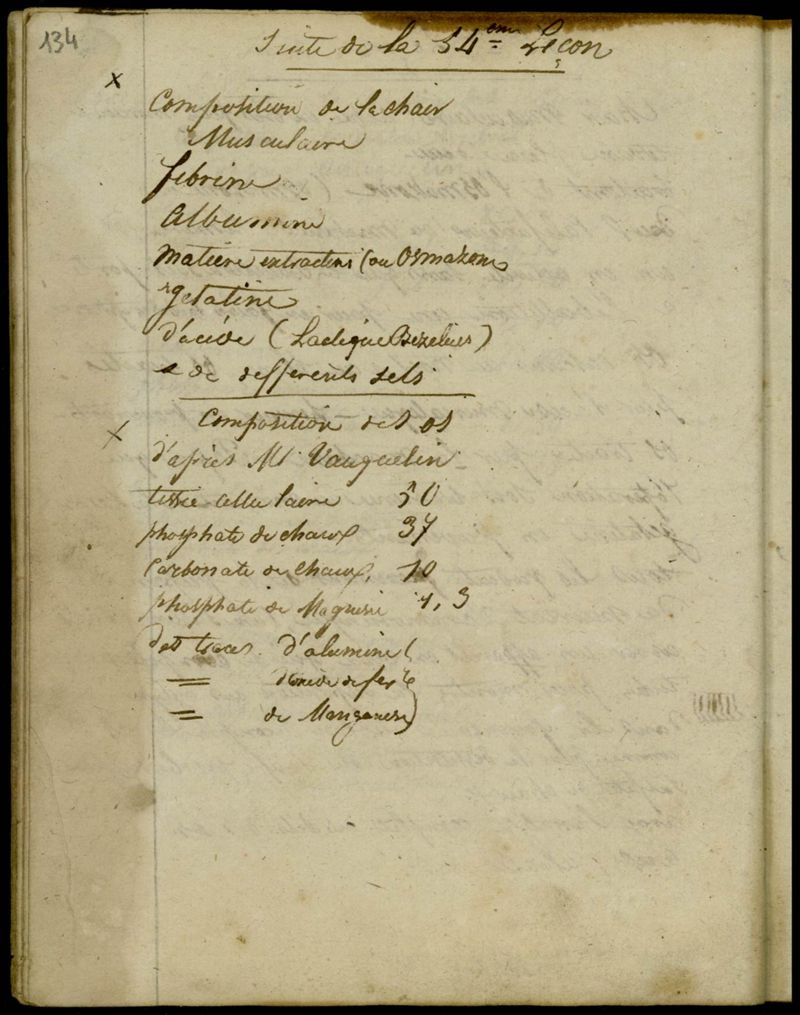 134
Suite de la 54eme Leçon
x
Composition de la chair
Musculaire
fibrine
Albumine
Matière extractive (ou Osmazome
gelatine
d'acide (Lactique Bezelius)
e de differents sels
Composition des os
x
d'après Mr Vauquelin
tissu cellulaire 50
phosphate de chaux 37
Carbonate de Chaux, 10
phosphate de Magnesie 1,3
Des traces d'alumine
= d'oxide de fer
= de Manganese